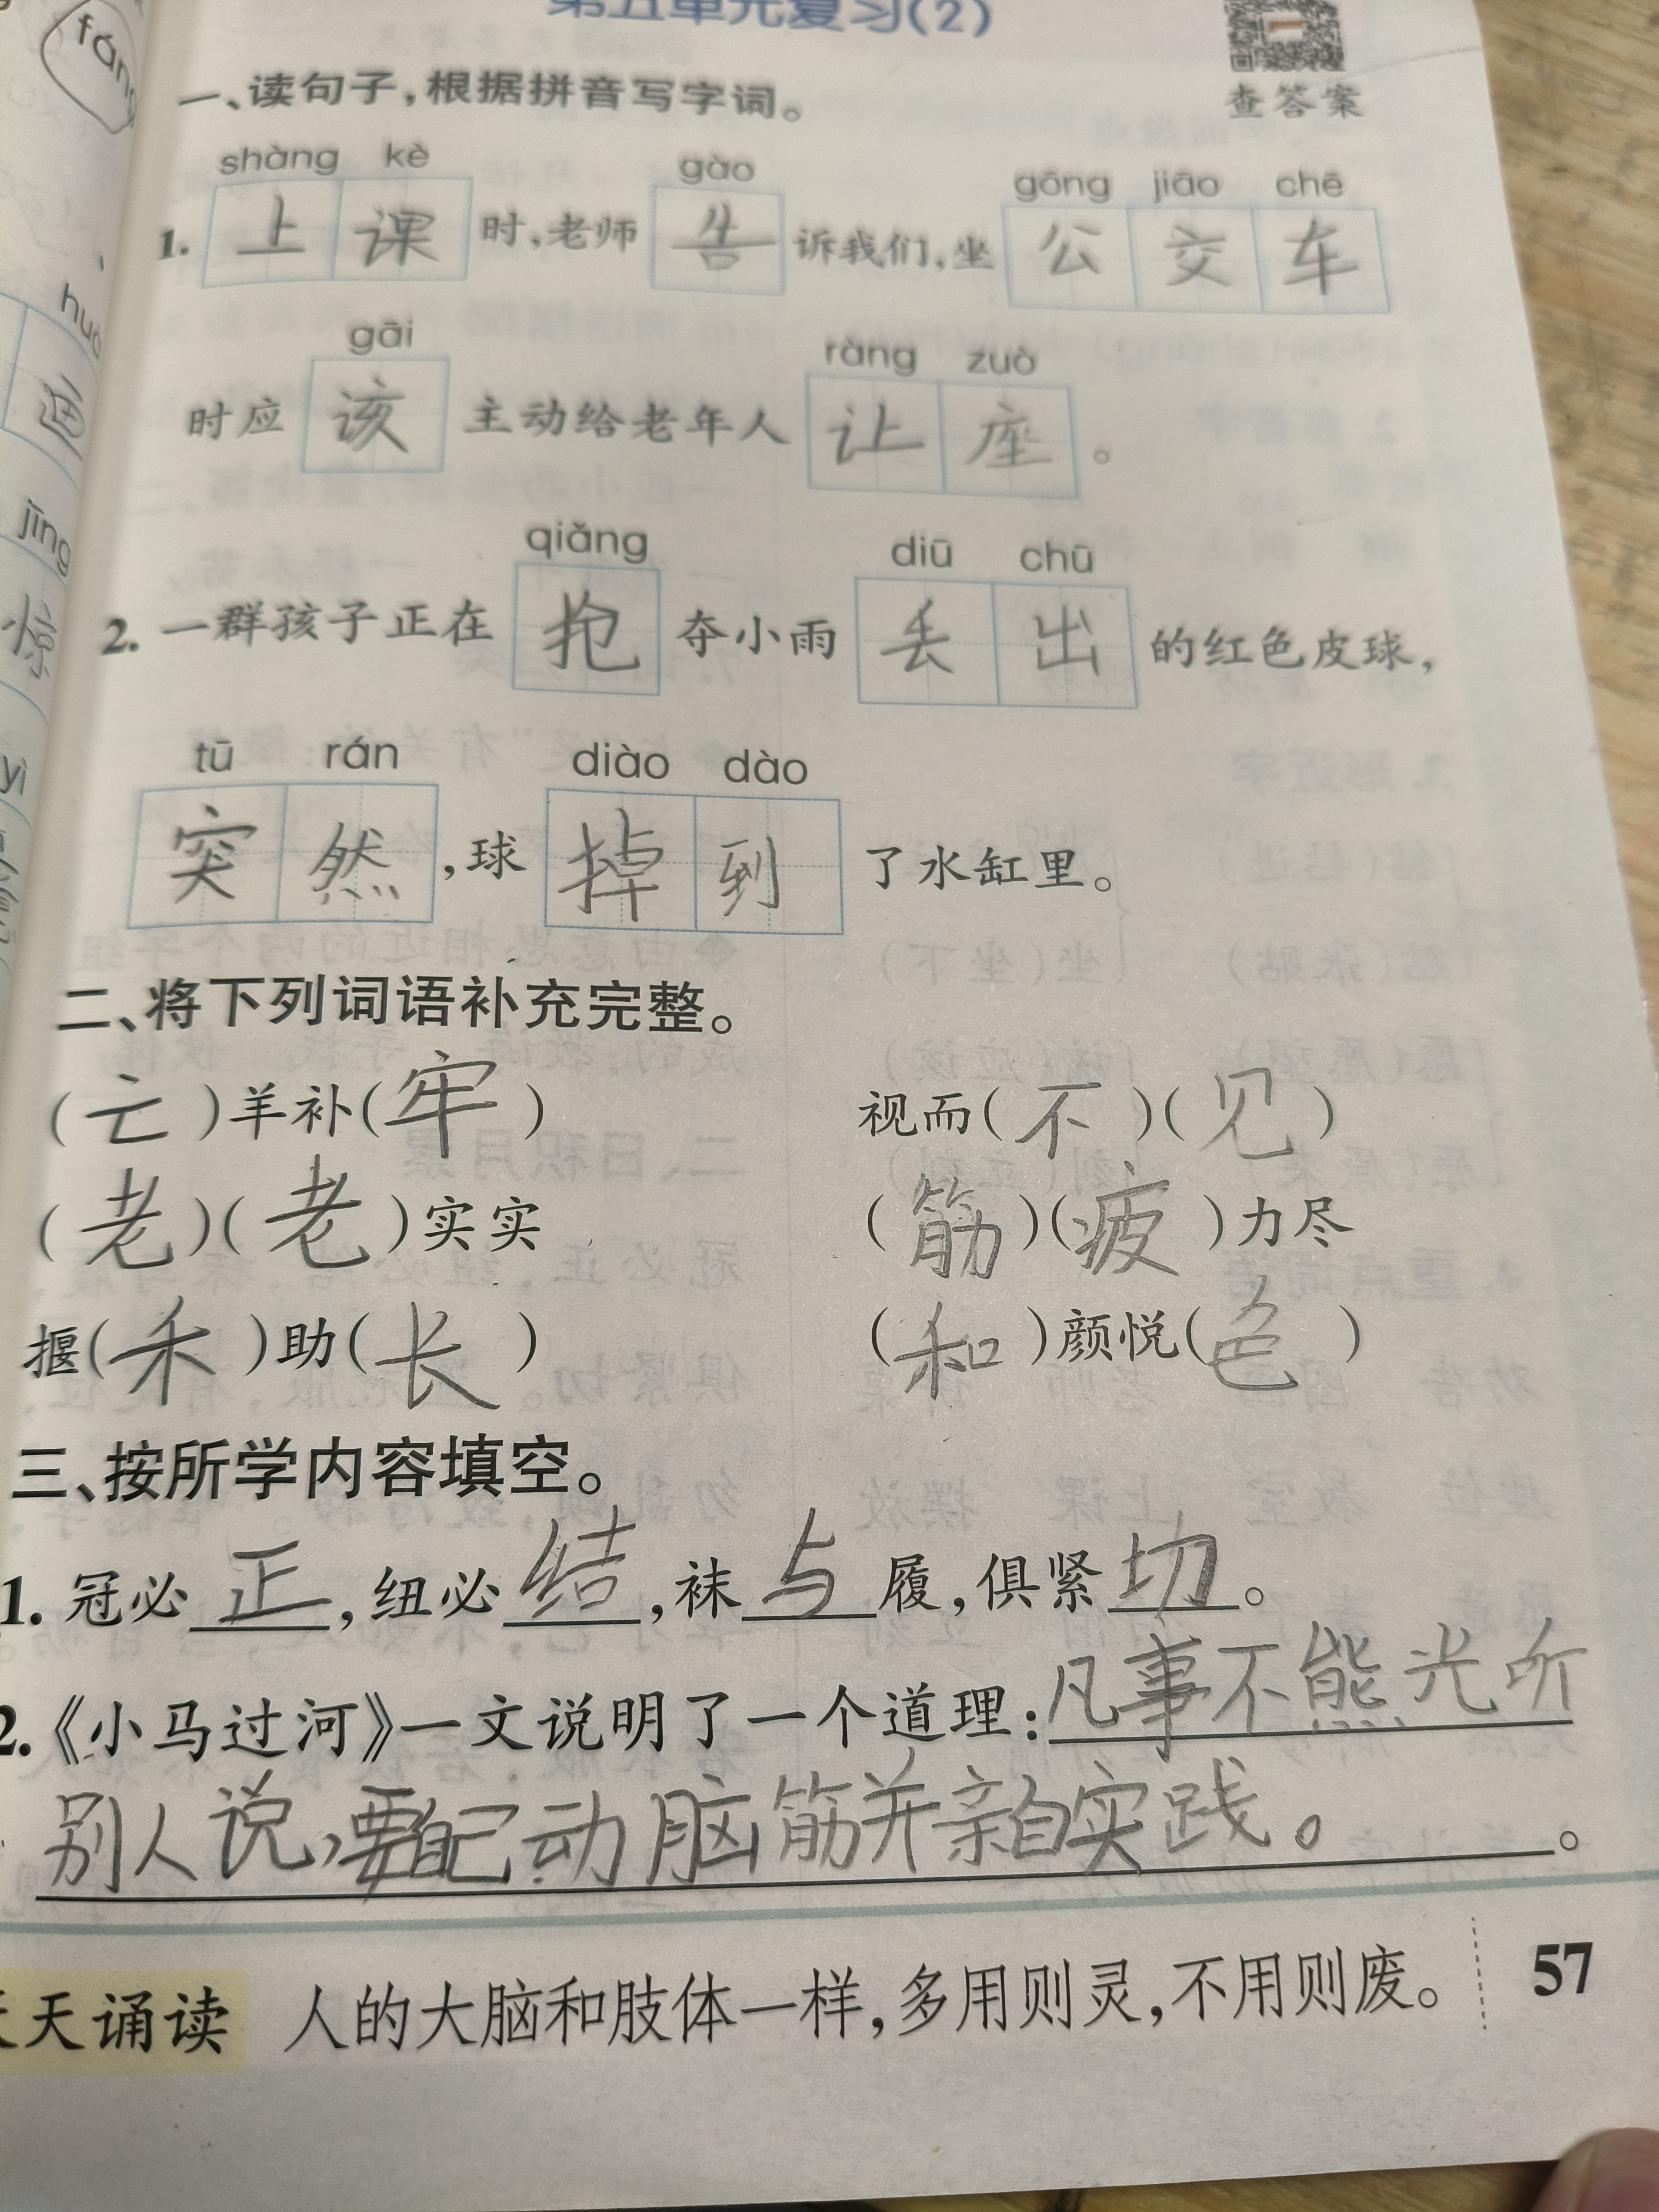 第五单元复习(2)
查答案
一、读句子，根据拼音写字词。
shàng kè gào gōng jiāo chē
1. 上课时，老师告诉我们，坐公交车
gāi ràng zuò
时应该主动给老年人让座。
qiǎng diū chū
2. 一群孩子正在抱夺小雨丢出的红色皮球，
tū rán diào dào
突然，球掉到了水缸里。
二、将下列词语补充完整。
(亡)羊补(牢) 视而(不)(见)
(老)(老)实实 (筋)(疲)力尽
揠(禾)助(长) (和)颜悦(色)
三、按所学内容填空。
1. 冠必正，纽必结，袜与履，俱紧切。
2.《小马过河》一文说明了一个道理：凡事不能光听
别人说，要自己动脑筋并亲自实践。。
天天诵读 人的大脑和肢体一样，多用则灵，不用则废。 57
fáng
jīng
yì